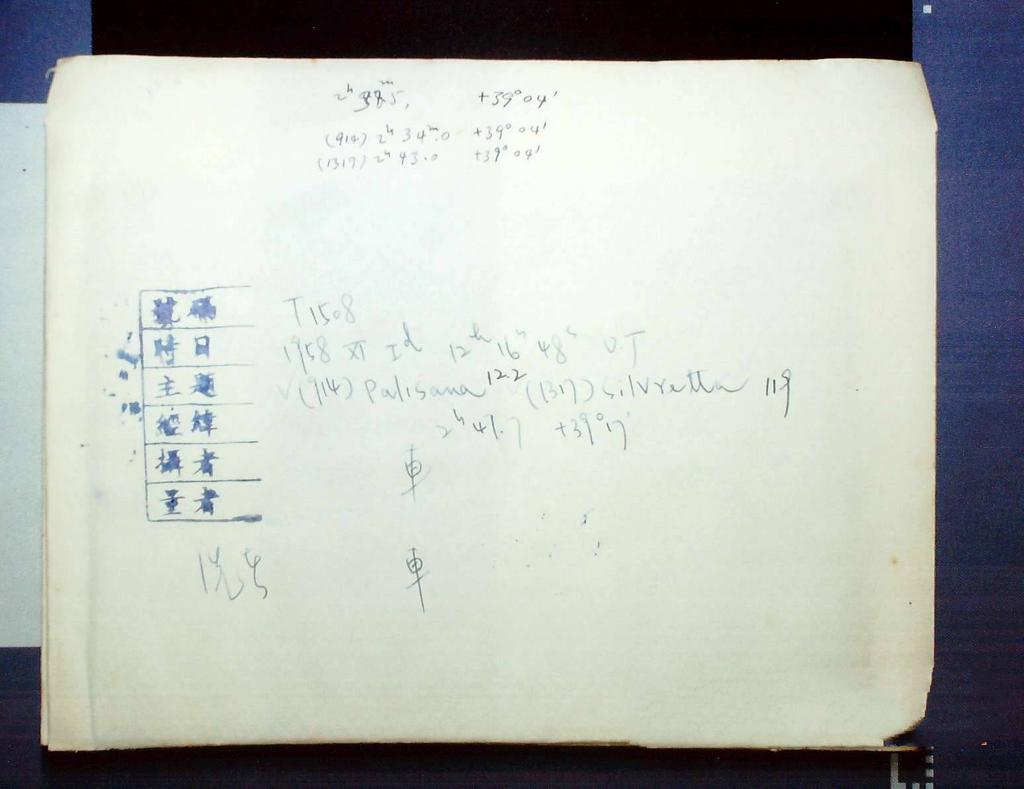 2ʰ 38ᵐ5, +39°04'
(914) 2ʰ 34ᵐ.0 +39°04'
(1317) 2ʰ 43.0 +39°04'
號碼 T1508
時日 1958 XI Iᵈ 12ʰ 16ᵐ 48ˢ U.T
主題 √(914) Palisana 12.2 (1317) Silvretta 119
經緯 2ʰ47.7 +39°17'
攝者 車
量者
洗者 車